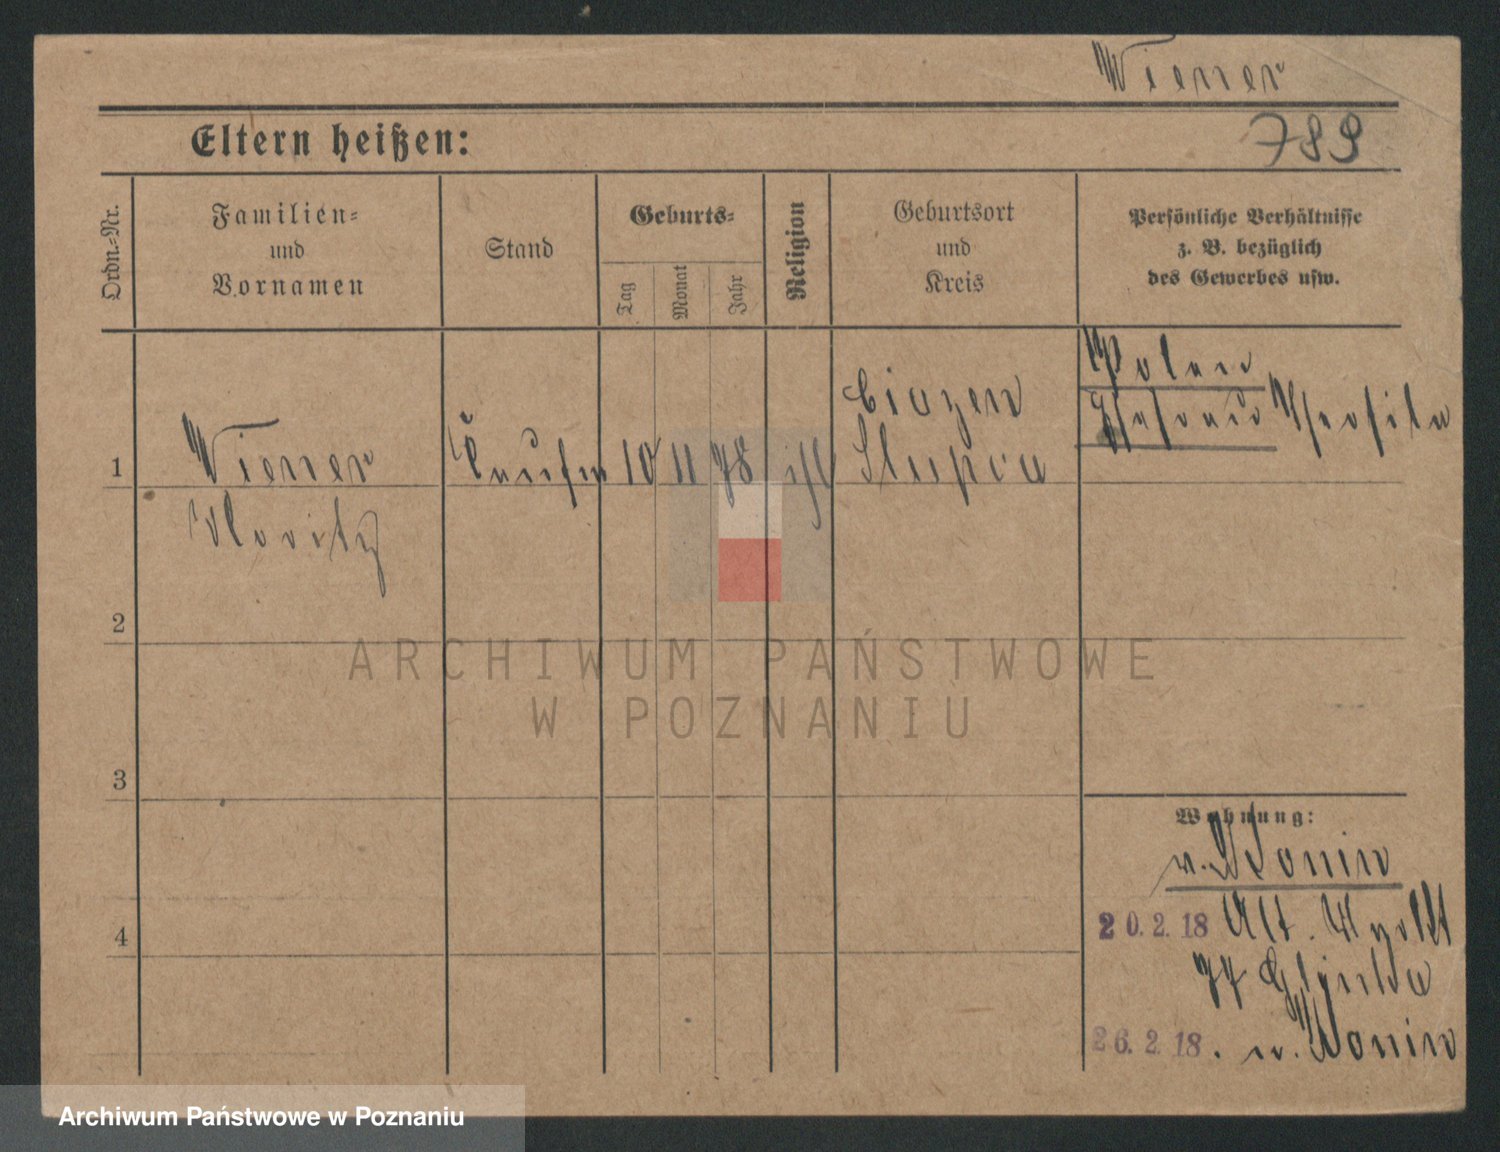 Wiener
Eltern heißen:
789
Ordn.=Nr.
Familien=
und
Vornamen
Stand
Geburts=
Tag
Monat
Jahr
Religion
Geburtsort
und
Kreis
Persönliche Verhältnisse
z. B. bezüglich
des Gewerbes usw.
1
Wiener
Moritz
10
11
78
isr
Ciazen
Slupca
Polen
2
3
4
Wohnung:
n. Konin
20.2.18 Alt. Markt
74 Glinka
26.2.18. n. Konin
ARCHIWUM PAŃSTWOWE
W POZNANIU
Archiwum Państwowe w Poznaniu